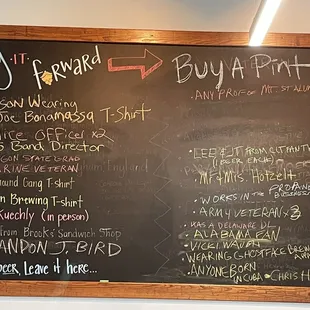 y IT forward
son Wearing
Joe Bonamassa T-Shirt
ice officer x2
Band Director
GON STATE GRAD
ARINE VETERAN
ound Gang T-shirt
n Brewing T-shirt
Kuechly (in person)
from Brooks' Sandwich Shop
ANDON J. BIRD
BEER, Leave it here...
BUY A Pint
- ANY PROF OR MT ST ALUM
(BEER EACH)
- Mr & Mrs. Hotzelt
- WORKS IN THE PROPANE BUSINESS
- ARMY VETERAN x3
- HAS A DELAWARE DL
- ALABAMA FAN
- VICKI WAVEN
- WEARING GHOSTFACE BREWING
- ANYONE BORN IN CUBA - CHRIS H